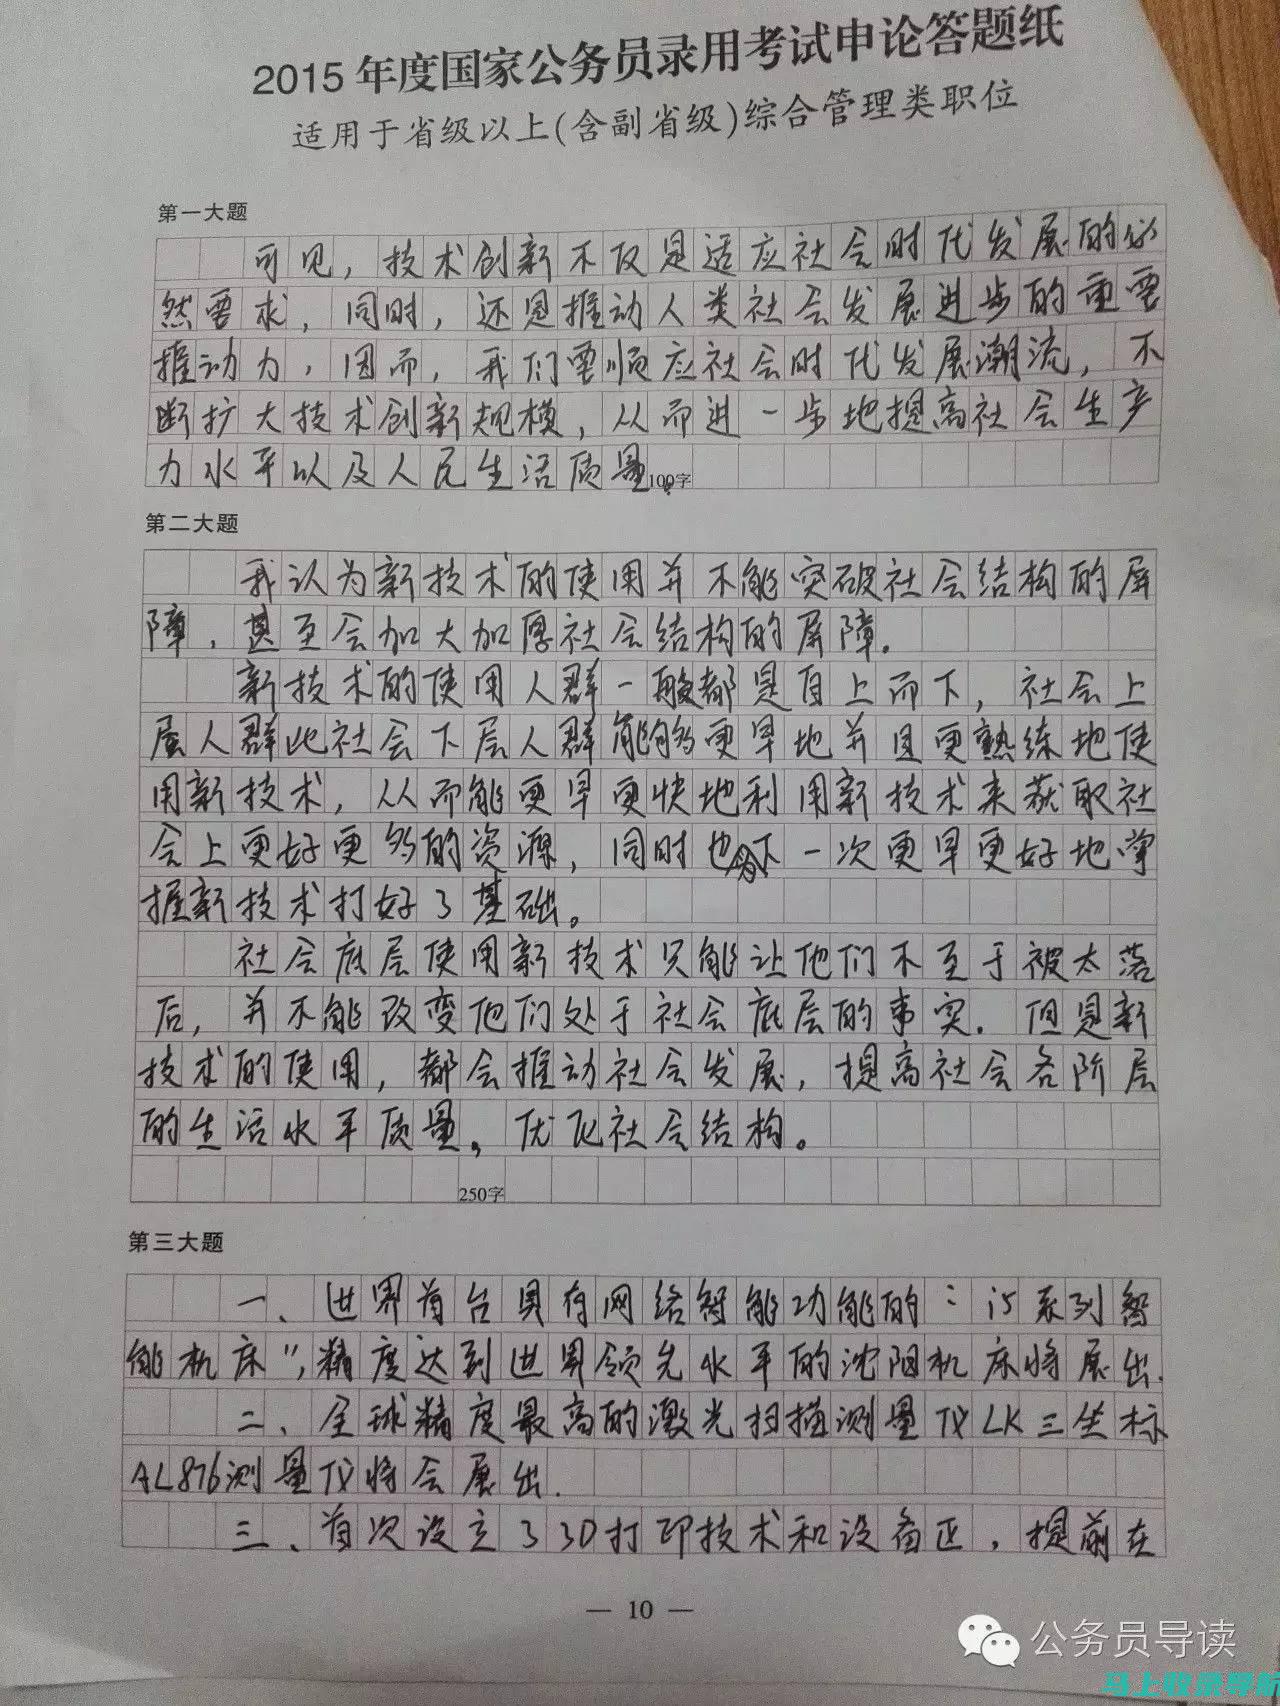 2015年度国家公务员录用考试申论答题纸
适用于省级以上(含副省级)综合管理类职位
第一大题
可见，技术创新不仅是适应社会时代发展的必
然要求，同时，还是推动人类社会发展进步的重要
推动力，因而，我们要顺应社会时代发展潮流，不
断扩大技术创新规模，从而进一步地提高社会生产
力水平以及人民生活质量。
100字
第二大题
我认为新技术的使用并不能突破社会结构的屏
障，甚至会加大加厚社会结构的屏障。
新技术的使用人群一般都是自上而下，社会上
层人群比社会下层人群能够更早地并且更熟练地使
用新技术，从而能更早更快地利用新技术来获取社
会上更好更多的资源，同时也为下一次更早更好地掌
握新技术打好了基础。
社会底层使用新技术只能让他们不至于被太落
后，并不能改变他们处于社会底层的事实．但是新
技术的使用，都会推动社会发展，提高社会各阶层
的生活水平质量，优化社会结构。
250字
第三大题
一、世界首台具有网络智能功能的"i5系列智
能机床"，精度达到世界领先水平的沈阳机床将展出．
二、全球精度最高的激光扫描测量仪LK三坐标
AL876测量仪将会展出．
三、首次设立了3D打印技术和设备区，提前在
— 10 —
公务员导读
马上收录导航